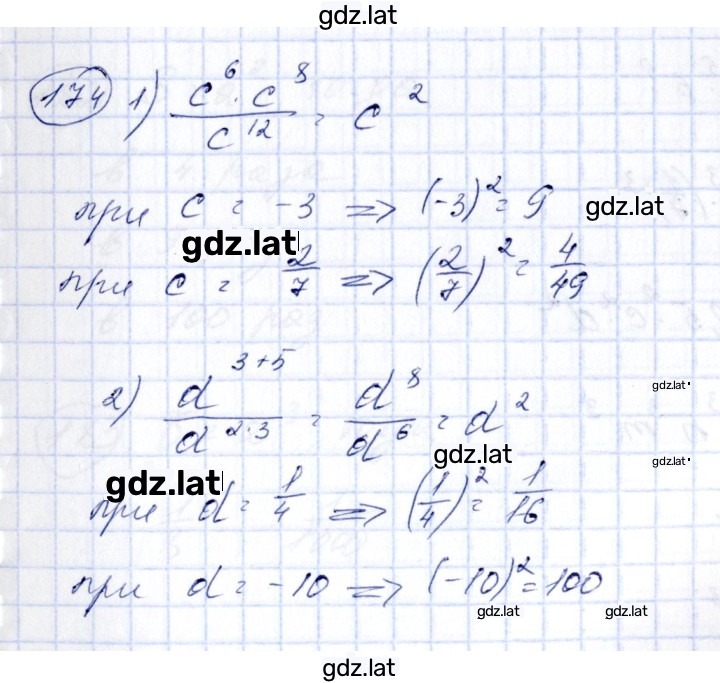 gdz.lat
174 1) c⁶·c⁸/c¹² = c²
при c = -3 => (-3)² = 9 gdz.lat
gdz.lat
при c = 2/7 => (2/7)² = 4/49
2) d³⁺⁵/d²·³ = d⁸/d⁶ = d² gdz.lat
gdz.lat gdz.lat
gdz.lat
при d = 1/4 => (1/4)² = 1/16
при d = -10 => (-10)² = 100
gdz.lat gdz.lat
gdz.lat